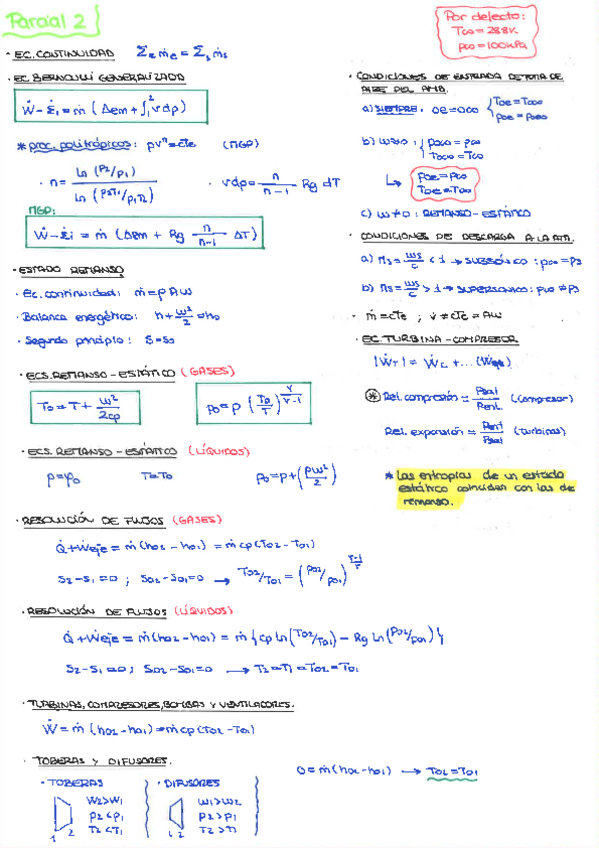 Parcial 2
Por defecto:
T∞ = 288K
p∞ = 100kPa
· EC. CONTINUIDAD Σₑ ṁe = Σₛ ṁs
· EC. BERNOULLI GENERALIZADA
Ẇ - Ėi = ṁ (Δem + ∫₁² vdp)
* proc. politrópicos: pvⁿ = cte (MGP)
· n = ln (p2/p1) / ln (p2T1/p1T2) · vdp = n/(n-1) Rg dT
MGP:
Ẇ - Ėi = ṁ (Δem + Rg n/(n-1) ΔT)
· ESTADO REMANSO
· Ec. continuidad: ṁ = ρAω
· Balance energético: h + ω²/2 = h0
· Segundo principio: S = S0
· ECS. REMANSO - ESTÁTICO (GASES)
T0 = T + ω²/2cp
p0 = p (T0/T)^(γ/(γ-1))
· ECS. REMANSO - ESTÁTICO (LÍQUIDOS)
ρ = ρ0 T = T0 p0 = p + (ρω²/2)
· RESOLUCIÓN DE FLUJOS (GASES)
Q̇ + Ẇeje = ṁ (h02 - h01) = ṁ cp (T02 - T01)
S2 - S1 = 0 ; S02 - S01 = 0 → T02/T01 = (p02/p01)^((γ-1)/γ)
· RESOLUCIÓN DE FLUJOS (LÍQUIDOS)
Q̇ + Ẇeje = ṁ (h02 - h01) = ṁ { cp ln (T02/T01) - Rg ln (p02/p01) }
S2 - S1 = 0 ; S02 - S01 = 0 → T2 = T1 = T02 = T01
· TURBINAS, COMPRESORES, BOMBAS Y VENTILADORES.
Ẇ = ṁ (h02 - h01) = ṁ cp (T02 - T01)
· TOBERAS Y DIFUSORES.
0 = ṁ (h02 - h01) → T02 = T01
· TOBERAS
1 2
ω2 > ω1
p2 < p1
T2 < T1
· DIFUSORES
1 2
ω1 > ω2
p2 > p1
T2 > T1
· CONDICIONES DE ENTRADA DE TOMA DE
AIRE DEL AMB.
a) SIEMPRE: 0e = 0∞ { T0e = T0∞
p0e = p0∞
b) ω∞ : { p0∞ = p∞
T0∞ = T∞
↳ p0e = p∞
T0e = T∞
c) ω ≠ 0 : REMANSO - ESTÁTICO
· CONDICIONES DE DESCARGA A LA ATM.
a) Ms = ωs/c < 1 → SUBSÓNICO : p∞ = ps
b) Ms = ωs/c > 1 → SUPERSÓNICO : p∞ ≠ ps
· ṁ = cte ; V̇ ≠ cte = Aω
· EC. TURBINA - COMPRESOR
|ẆT| = Ẇc + ... (Ẇeje)
* Rel. compresión = psal/pent (compresor)
Rel. expansión = pent/psal (turbinas)
* Las entropías de un estado
estático coinciden con las de
remanso.